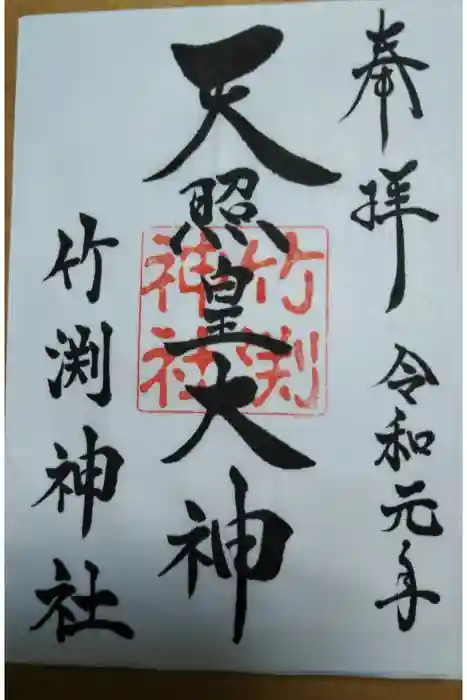 奉拝 令和元年
天照皇大神
竹渕神社
竹渕
神社